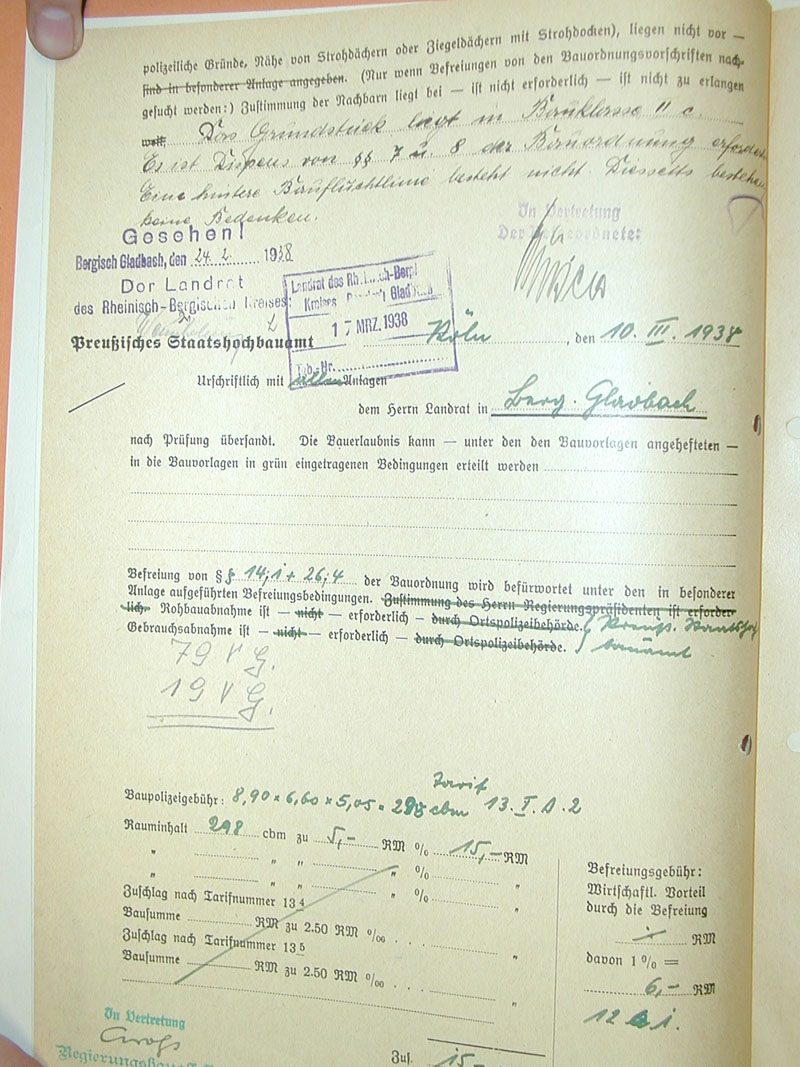 polizeiliche Gründe, Nähe von Strohdächern oder Ziegeldächern mit Strohdocken), liegen nicht vor —
sind in besonderer Anlage angegeben. (Nur wenn Befreiungen von den Bauordnungsvorschriften nach-
gesucht werden:) Zustimmung der Nachbarn liegt bei — ist nicht erforderlich — ist nicht zu erlangen
weil, Das Grundstück liegt in Bauklasse II c.
Es ist Dispens von §§ 7 u. 8 der Bauordnung erforderl
Eine hintere Baufluchtlinie besteht nicht. Diesseits bestehen
keine Bedenken.
Gesehen!
Bergisch Gladbach, den 24. 2. 1938
Der Landrat
des Rheinisch-Bergischen Kreises:
In Vertretung
Landrat des Rheinisch-Bergi
Kreises Glad
17 MRZ. 1938
Tgb.-Nr.
Preußisches Staatshochbauamt Köln, den 10. III. 1938
Urschriftlich mit allen Anlagen
dem Herrn Landrat in Berg. Gladbach
nach Prüfung übersandt. Die Bauerlaubnis kann — unter den den Bauvorlagen angehefteten —
in die Bauvorlagen in grün eingetragenen Bedingungen erteilt werden
Befreiung von §§ 14,1 + 26,4 der Bauordnung wird befürwortet unter den in besonderer
Anlage aufgeführten Befreiungsbedingungen. Zustimmung des Herrn Regierungspräsidenten ist erforder-
lich. Rohbauabnahme ist — nicht — erforderlich — durch Ortspolizeibehörde. Preuß. Staatshoch
Gebrauchsabnahme ist — nicht — erforderlich — durch Ortspolizeibehörde. bauamt
79 V G.
19 V G.
Tarif
Baupolizeigebühr: 8,90 × 6,60 × 5,05 = 298 cbm 13. I. A. 2
Rauminhalt 298 cbm zu 5,- RM % 15,- RM
" " " % "
" " " % "
Zuschlag nach Tarifnummer 13 4
Bausumme RM zu 2.50 RM ‰ . . . "
Zuschlag nach Tarifnummer 13 5
Bausumme RM zu 2.50 RM ‰ . . . "
Zus. 15
Befreiungsgebühr:
Wirtschaftl. Vorteil
durch die Befreiung
RM
davon 1 % =
6,- RM
In Vertretung